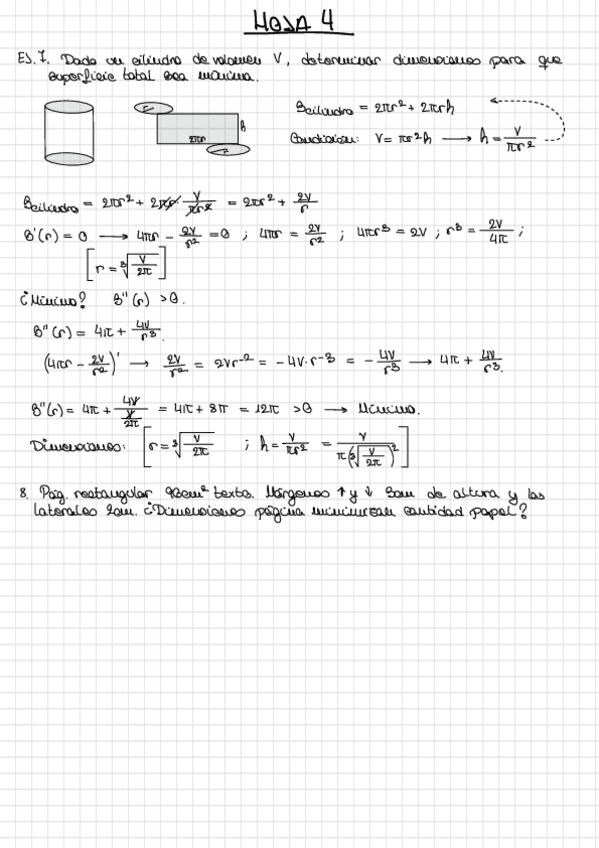 HOJA 4
EJ.7. Dado un cilindro de volumen V, determinar dimensiones para que
superficie total sea mínima.
r
2πr
h
r
Scilindro = 2πr² + 2πrh
Condición: V = πr²h → h = V/πr²
Scilindro = 2πr² + 2πr · V/πr² = 2πr² + 2V/r
S'(r) = 0 → 4πr - 2V/r² = 0 ; 4πr = 2V/r² ; 4πr³ = 2V ; r³ = 2V/4π ;
[r = ³√(V/2π)]
¿Mínimo? S''(r) > 0.
S''(r) = 4π + 4V/r³.
(4πr - 2V/r²)' → 2V/r² = 2Vr⁻² = -4V·r⁻³ = -4V/r³ → 4π + 4V/r³.
S''(r) = 4π + 4V/(V/2π) = 4π + 8π = 12π > 0 → Mínimo.
Dimensiones: [r = ³√(V/2π) ; h = V/πr² = V/π(³√(V/2π))²]
8. Pág. rectangular 98cm² texto. Márgenes ↑ y ↓ 3cm de altura y los
laterales 2cm. ¿Dimensiones página minimizan cantidad papel?